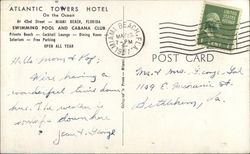 ATLANTIC TOWERS HOTEL
On the Ocean
At 42nd Street - MIAMI BEACH, FLORIDA
SWIMMING POOL AND CABANA CLUB
Private Beach - Cocktail Lounge - Dining Room
Solarium - Free Parking
OPEN ALL YEAR
Hello Mom & Pop,
We're having a
wonderful time down
here. The weather is
wonderful down here
MIAMI BEACH, FLA.
POST CARD
Mr. & Mrs. George
1149 E. Mechanic St.
Bethlehem, Pa.